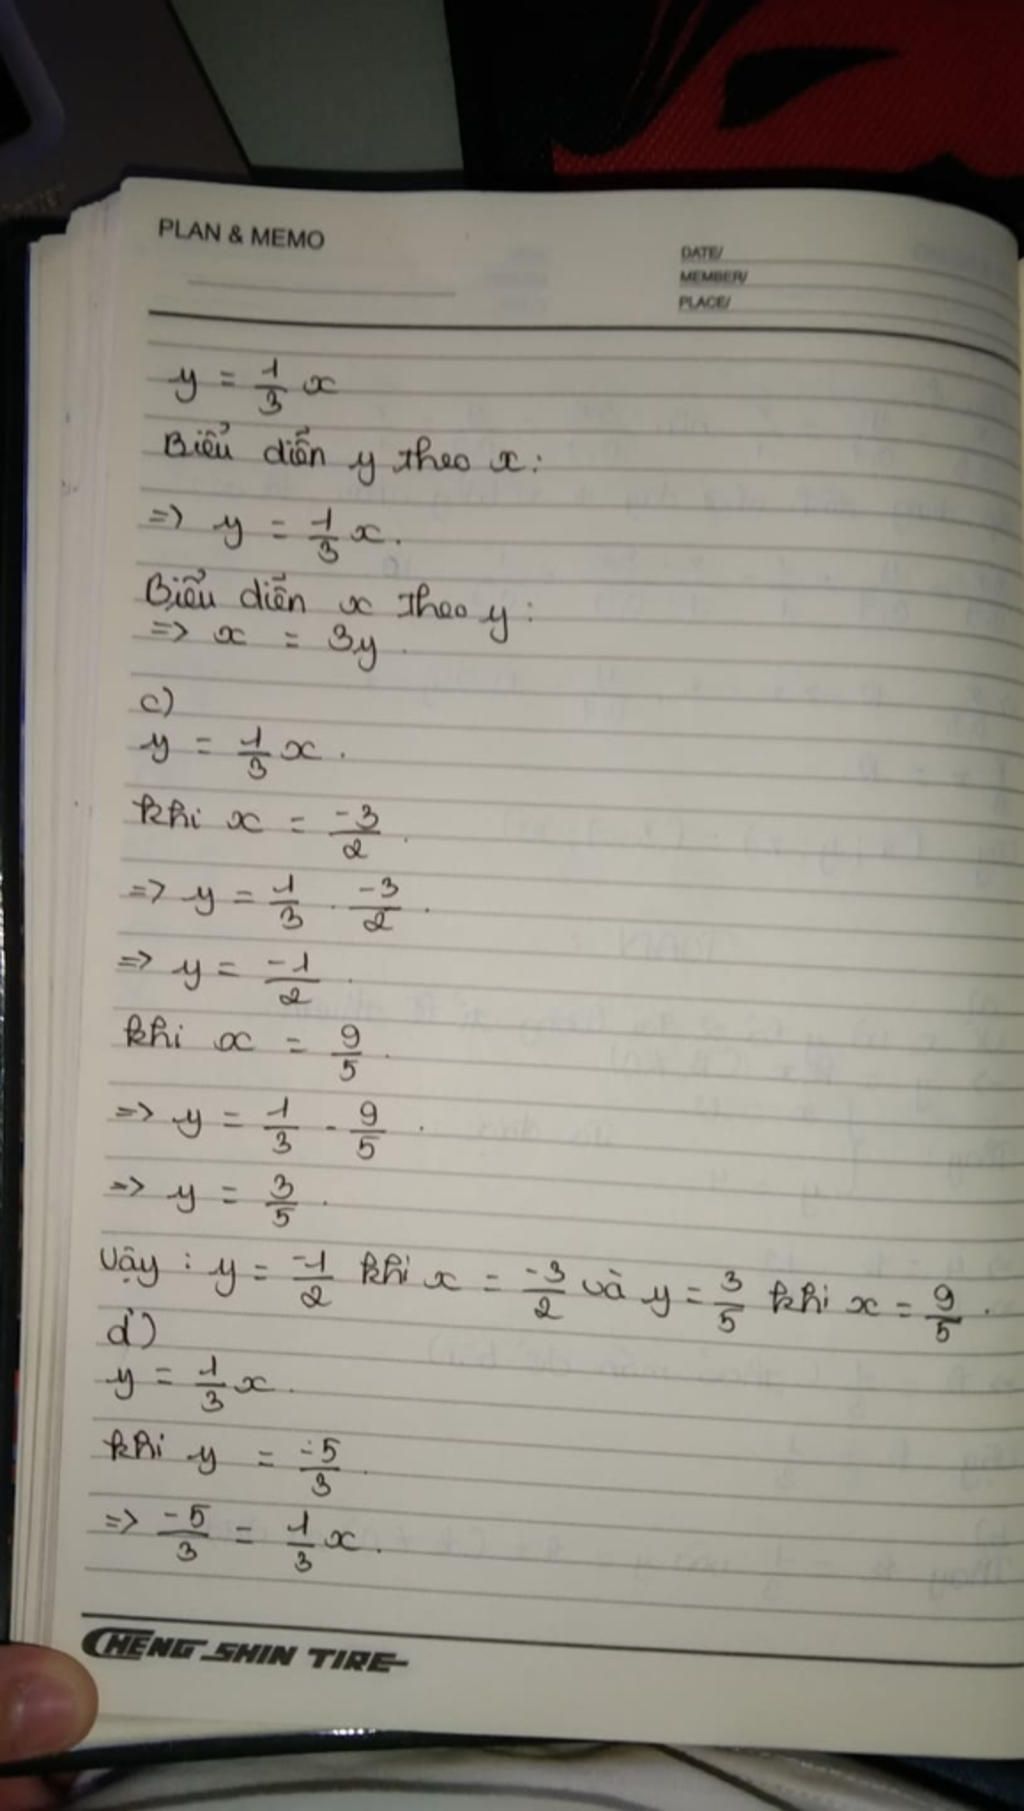 PLAN & MEMO
DATE/
MEMBER/
PLACE/
y = 1/3 x
Biểu diễn y theo x:
=> y = 1/3 x.
Biểu diễn x theo y:
=> x = 3y.
c)
y = 1/3 x.
khi x = -3/2.
=> y = 1/3 . -3/2.
=> y = -1/2.
khi x = 9/5.
=> y = 1/3 . 9/5.
=> y = 3/5.
Vậy : y = -1/2 khi x = -3/2 và y = 3/5 khi x = 9/5.
d)
y = 1/3 x.
khi y = -5/3.
=> -5/3 = 1/3 x.
CHENG SHIN TIRE